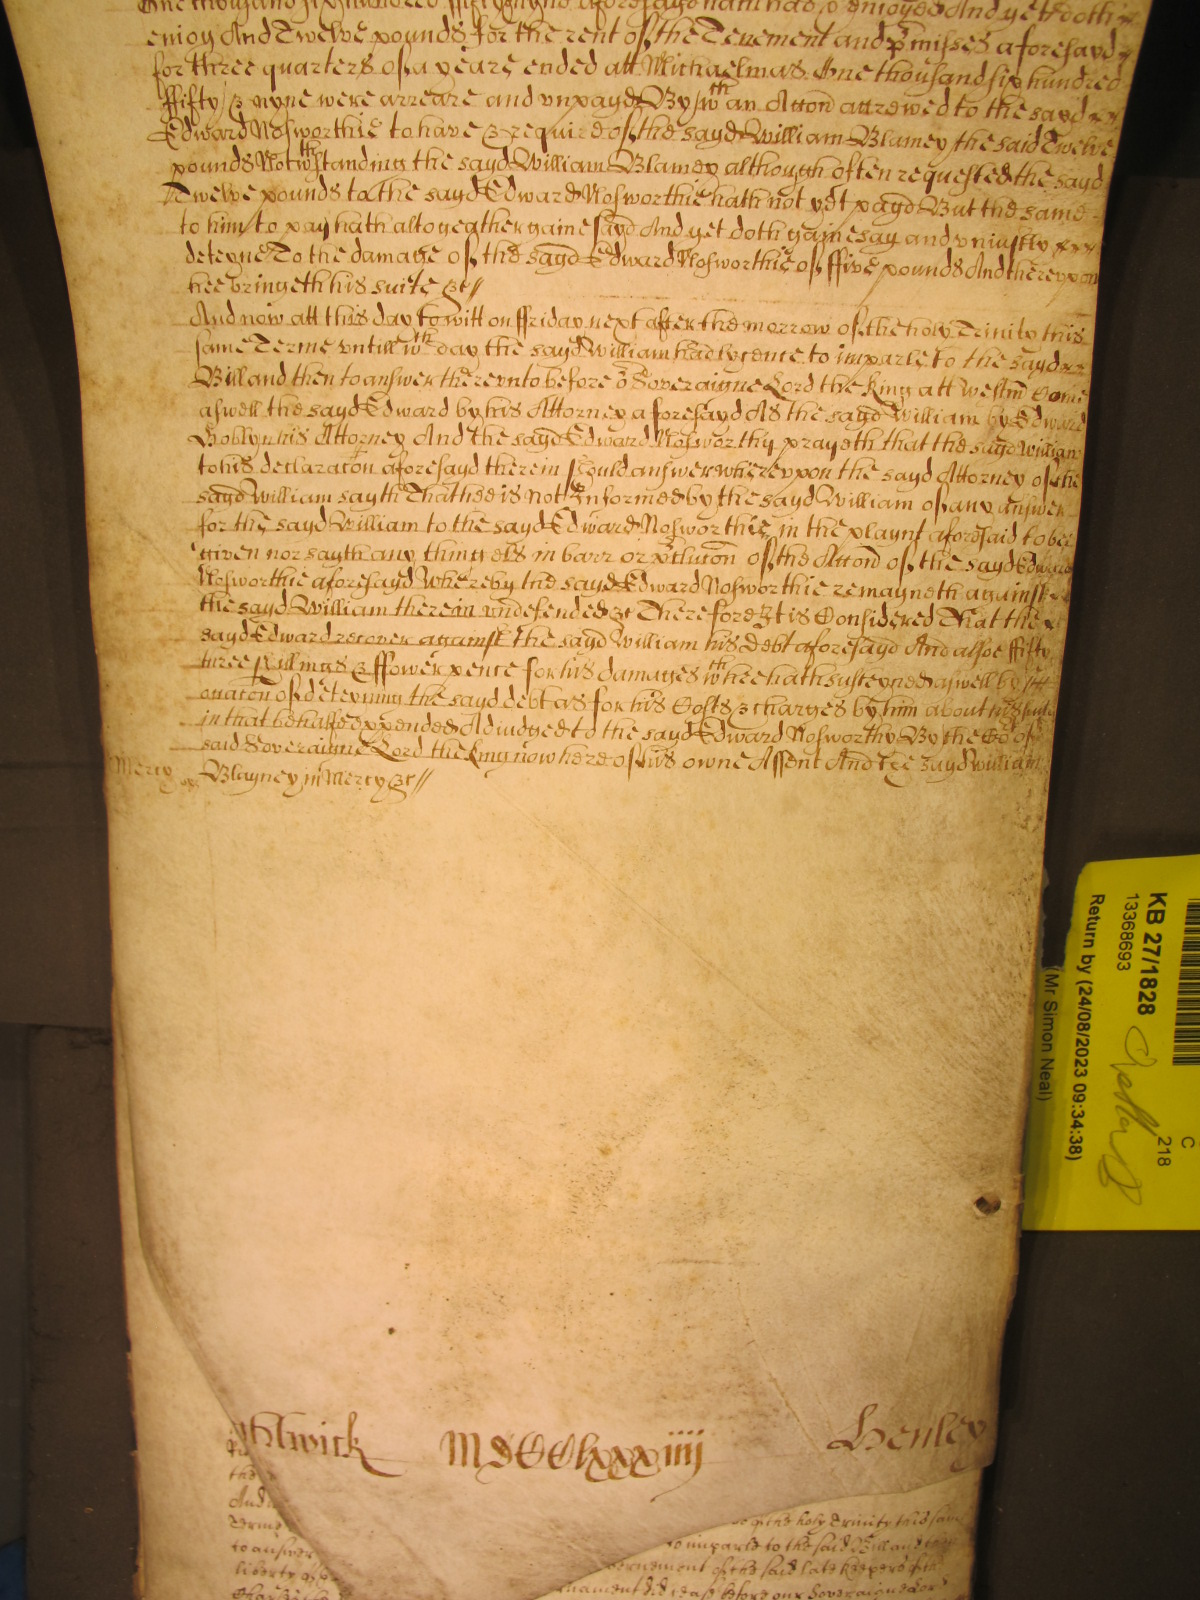 One thousand six hundred fifty & nyne aforesayd hath had & enioyed And yet doth
enioy And Twelve pounds for the rent of the Tenement and p̄misses aforesayd
for three quarters of a yeare ended att Michaelmas One thousand six hundred
ffifty & nyne were arreare and vnpayd By wth an Accon̄ accrewed to the sayd
Edward Nosworthie to have & require of the sayd William Blamey the said Twelve
pounds Notwthstanding the sayd William Blamey although often requested the sayd
Twelve pounds to the sayd Edward Nosworthie hath not yet payd But the same
to him to pay hath altogeather gainesayd And yet doth gainesay and vniustly
deteyne To the damage of the sayd Edward Nosworthie of ffive pounds And therevpon
hee bringeth his suite &c//
And now att this day to witt on ffriday next after the morrow of the holy Trinity this
same Terme vntill wch day the sayd William had lycence to imparle to the sayd
Bill and then to answer therevnto before or Soveraigne Lord the King att Westm̄ Come
aswell the sayd Edward by his Attorney aforesayd As the sayd William by Edward
his Attorney And the sayd Edward Nosworthy prayeth that the sayd William
to his declaracon̄ aforesayd therein should answer wherevpon the sayd Attorney of the
sayd William sayth That hee is not Informed by the sayd William of any answer
for the sayd William to the sayd Edward Nosworthie in the playnt aforesaid to bee
given nor sayth any thing els in barr or p̄clucon̄ of the Accon̄ of the sayd Edward
Nosworthie aforesayd Whereby the sayd Edward Nosworthie remayneth against
the sayd William therein vndefended &c Therefore It is Considered That the
sayd Edward recover against the sayd William his Debt aforesayd And alsoe ffifty
three shillings & ffower pence for his damages wch hee hath susteyned aswell by
occacon̄ of deteyning the sayd debt as for his Costs & charges by him about his suite
in that behalfe expended Adiudged to the sayd Edward Nosworthy By the Co of
said Soveraigne Lord the King now here of his owne Assent And the sayd William
Mercy Blayney in Mercy &c//
KB 27/1828
13368693
Return by (24/08/2023 09:34:38)
(Mr Simon Neal)
C
218
MdCClxxxiiij
Henley
of the holy Trinity this same
to imparle to the said Bill and
to answer
vernement of the said late keepers of the
liberty of
rnament did cease before our Soveraigne Lord